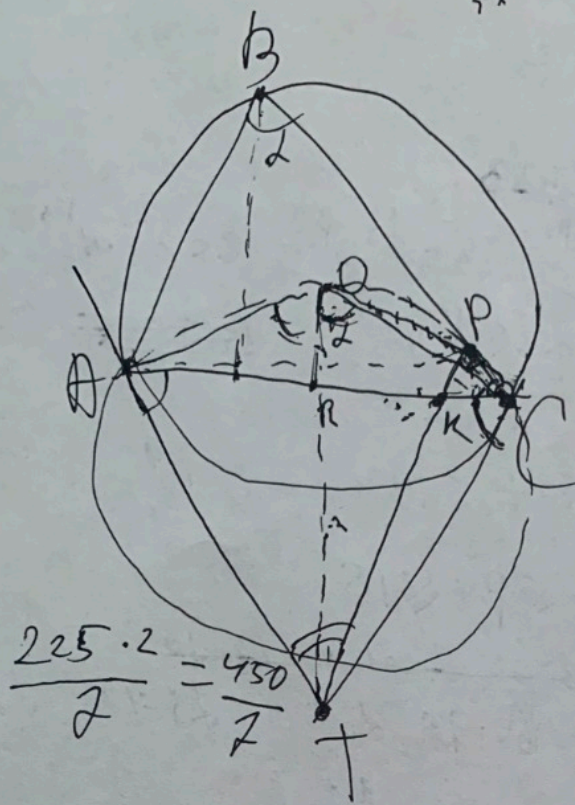 B
α
O
α
P
A
R
K
C
225 · 2 / 2 = 450 / 2
T